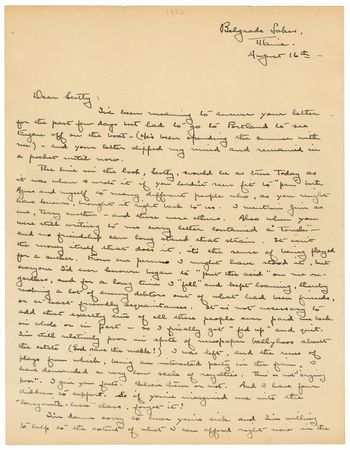 1926
Belgrade Lakes,
Maine.
August 16th -
Dear Scotty:
I've been meaning to answer your letter
for the past few days but had to go to Portland to see
Eugene off on the boat - (He's been spending the summer with
me) - and your letter slipped my mind and remained in
a pocket until now.
The line in the book, Scotty, would be as true today as
it was when I wrote it if you hadn't seen fit to "pan" both
Agnes and myself to many, different people who, as you might
have known, brought it right back to us. I mention Jim as
one, Terry another - and there were others. Also when you
were still writing to me every letter contained a "touch" -
and no friendship can long stand that strain. It isn't
the money stuff that did it, it's the sense of being played
for a sucker. From one person I might have stood it, but
everyone I'd ever known began to "put the acid" on me re-
gardless, and for a long time I "fell" and kept loaning, thereby
making a lot of debtors out of what had been friends,
or at least friendly acquaintances. It is not necessary to
add that exactly two of all these people ever paid me back
in whole or in part - so I finally got "fed up" and quit.
I'm still relatively poor in spite of newspaper ballyhoo about
the estate (God save the mark!) I was left, and the runs of
plays from which, being an interested party in the firm, I
have demanded a very low scale of royalties. This is not "crying
poor". I give you facts. Believe them or not. And I have four
children to support. So if you've imagined me into the
"bourgeois-here" class, forget it!
I'm damn sorry to hear you're sick and I'm willing
to help to the extent of what I can afford right now in the